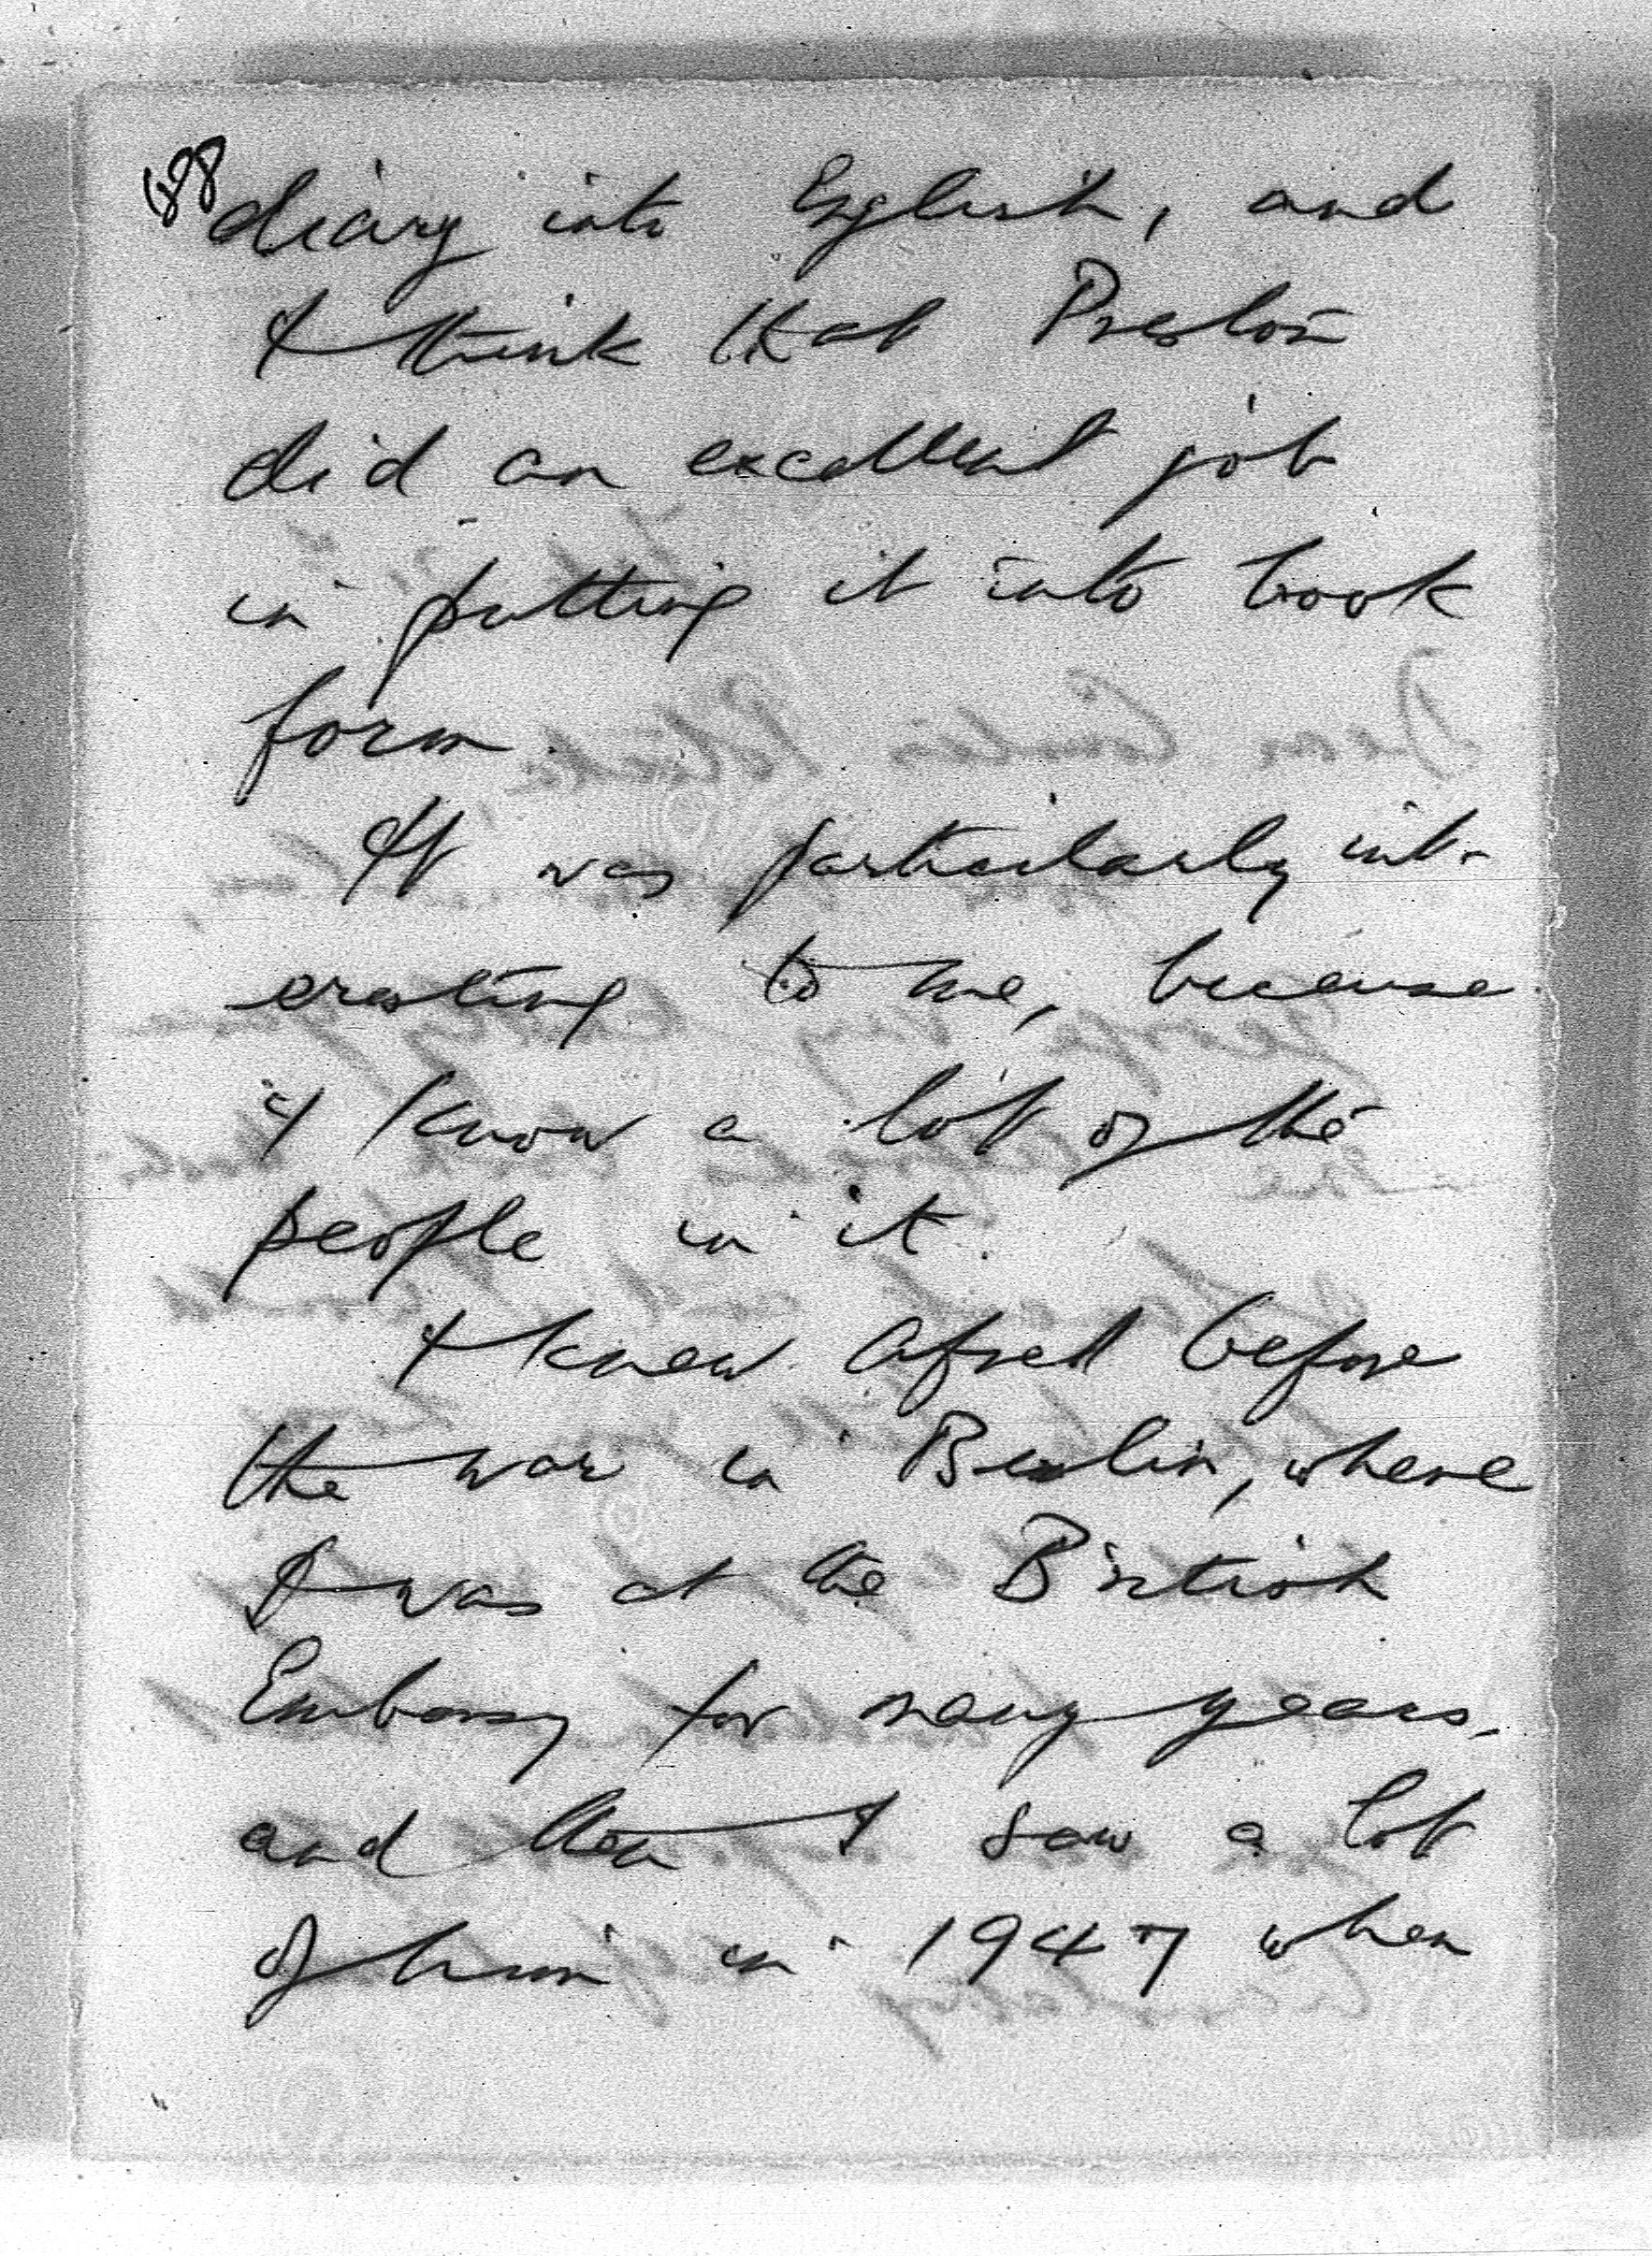 diary into English, and
I think that Preston
did an excellent job
in putting it into book
form.
It was particularly int-
eresting to me, because
I know a lot of the
people in it.
I knew Alfred before
the war in Berlin, where
I was at the British
Embassy for many years,
and then I saw a lot
of him in 1947 when